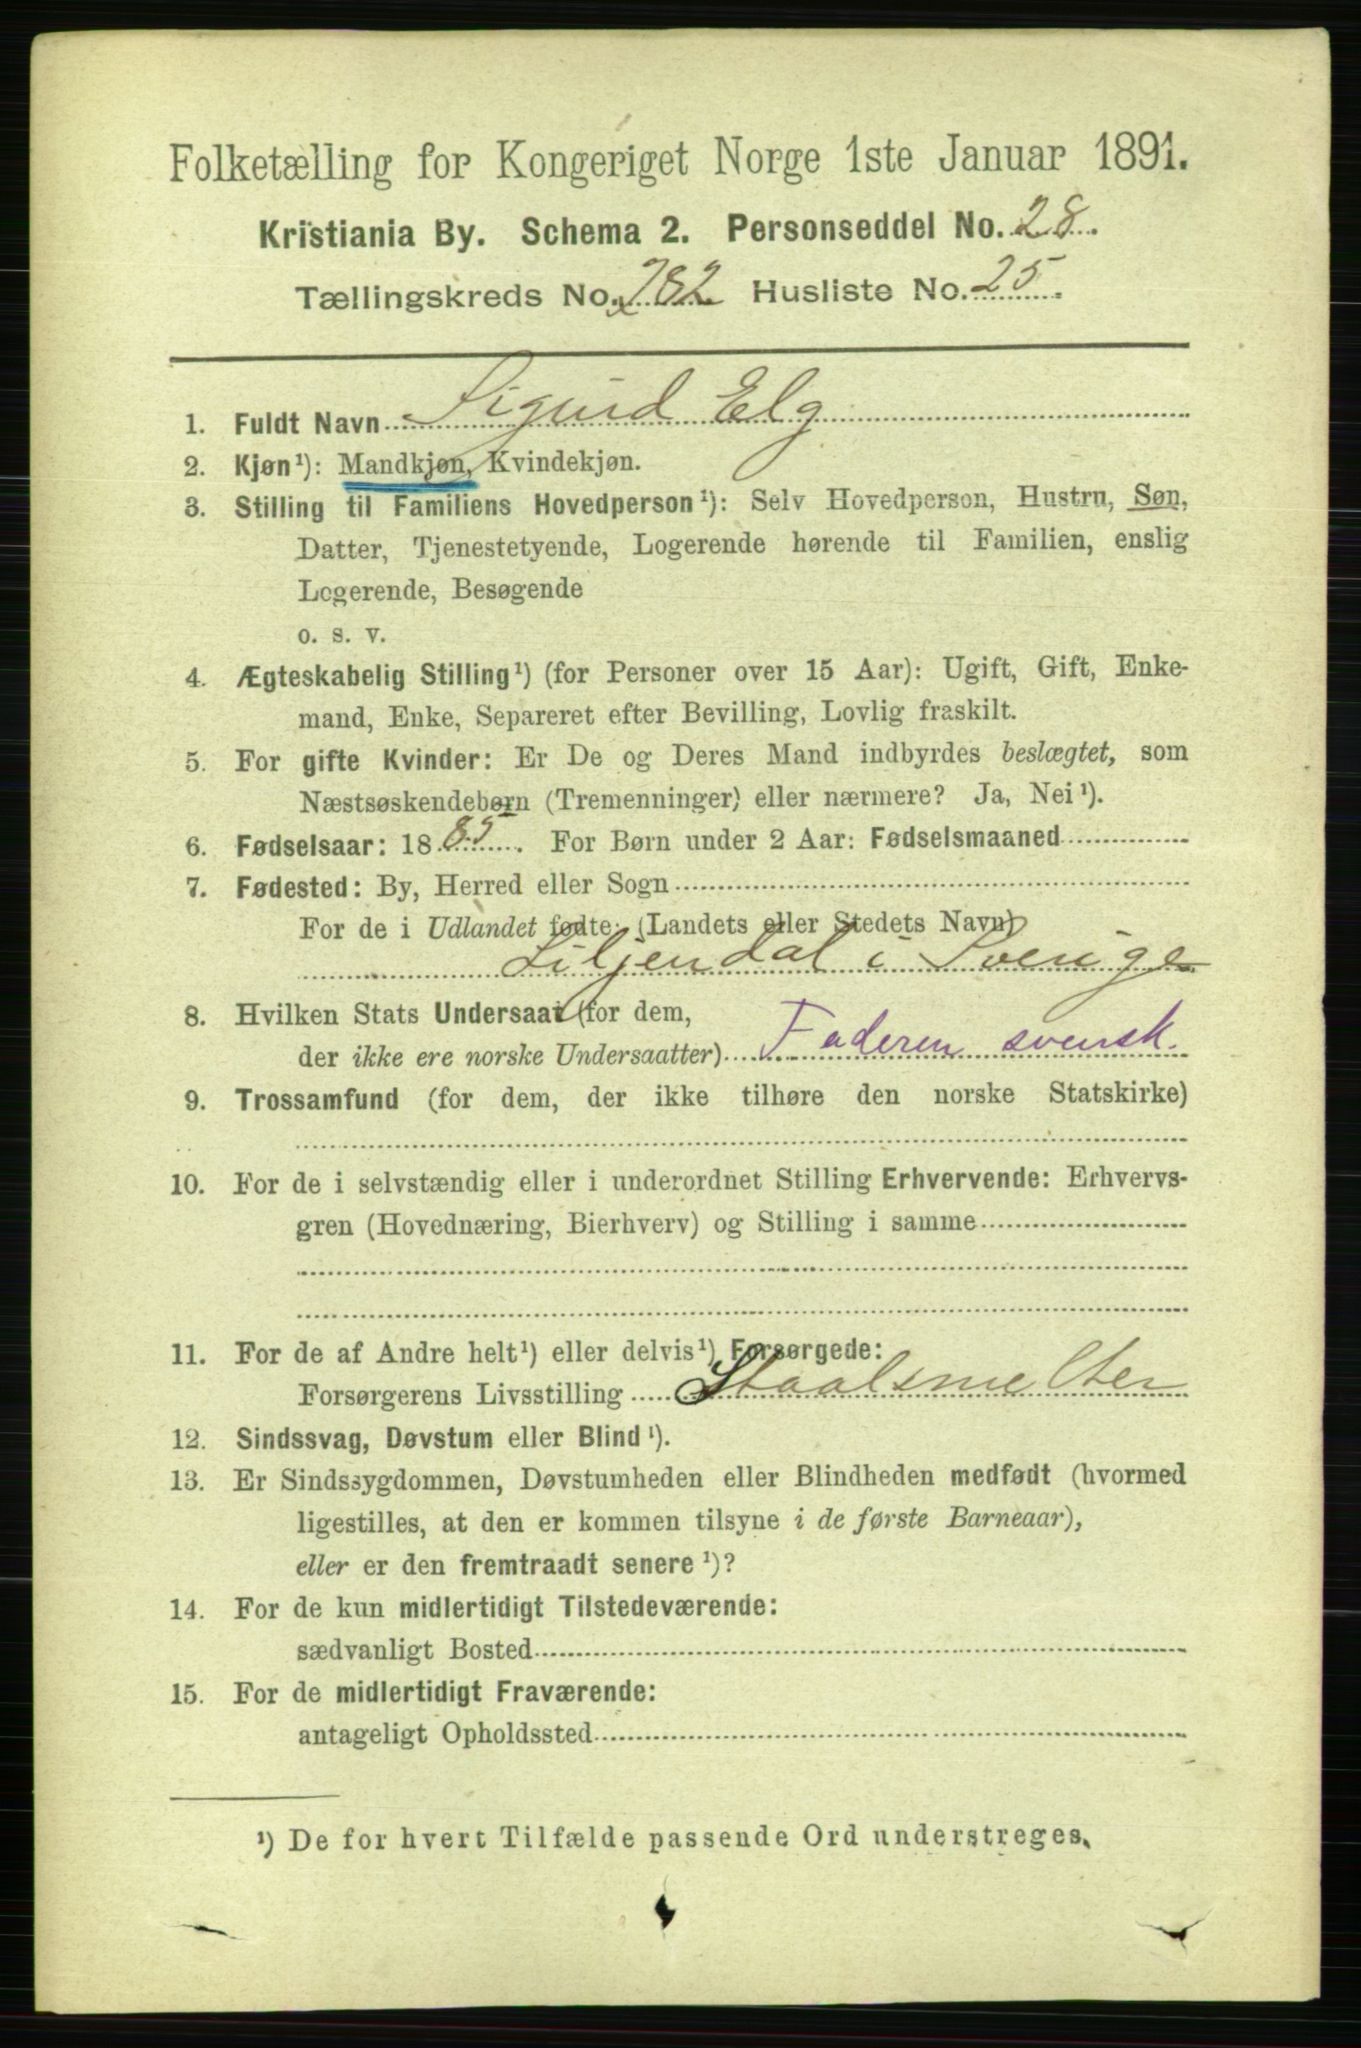 Folketælling for Kongeriget Norge 1ste Januar 1891.
Kristiania By. Schema 2. Personseddel No. 28.
Tællingskreds No. 282 Husliste No. 25
1. Fuldt Navn Sigurd Elg
2. Kjøn¹): Mandkjøn, Kvindekjøn.
3. Stilling til Familiens Hovedperson¹): Selv Hovedperson, Hustru, Søn,
Datter, Tjenestetyende, Logerende hørende til Familien, enslig
Logerende, Besøgende
o. s. v.
4. Ægteskabelig Stilling¹) (for Personer over 15 Aar): Ugift, Gift, Enke-
mand, Enke, Separeret efter Bevilling, Lovlig fraskilt.
5. For gifte Kvinder: Er De og Deres Mand indbyrdes beslægtet, som
Næstsøskendebørn (Tremenninger) eller nærmere? Ja, Nei¹).
6. Fødselsaar: 1885. For Børn under 2 Aar: Fødselsmaaned
7. Fødested: By, Herred eller Sogn
For de i Udlandet fødte: (Landets eller Stedets Navn)
Liljendal i Sverige
8. Hvilken Stats Undersaat (for dem,
der ikke ere norske Undersaatter) Faderen svensk.
9. Trossamfund (for dem, der ikke tilhøre den norske Statskirke)
10. For de i selvstændig eller i underordnet Stilling Erhvervende: Erhvervs-
gren (Hovednæring, Bierhverv) og Stilling i samme
11. For de af Andre helt¹) eller delvis¹) Forsørgede:
Forsørgerens Livsstilling Staalsmelter
12. Sindssvag, Døvstum eller Blind¹).
13. Er Sindssygdommen, Døvstumheden eller Blindheden medfødt (hvormed
ligestilles, at den er kommen tilsyne i de første Barneaar),
eller er den fremtraadt senere¹)?
14. For de kun midlertidigt Tilstedeværende:
sædvanligt Bosted
15. For de midlertidigt Fraværende:
antageligt Opholdssted
¹) De for hvert Tilfælde passende Ord understreges.